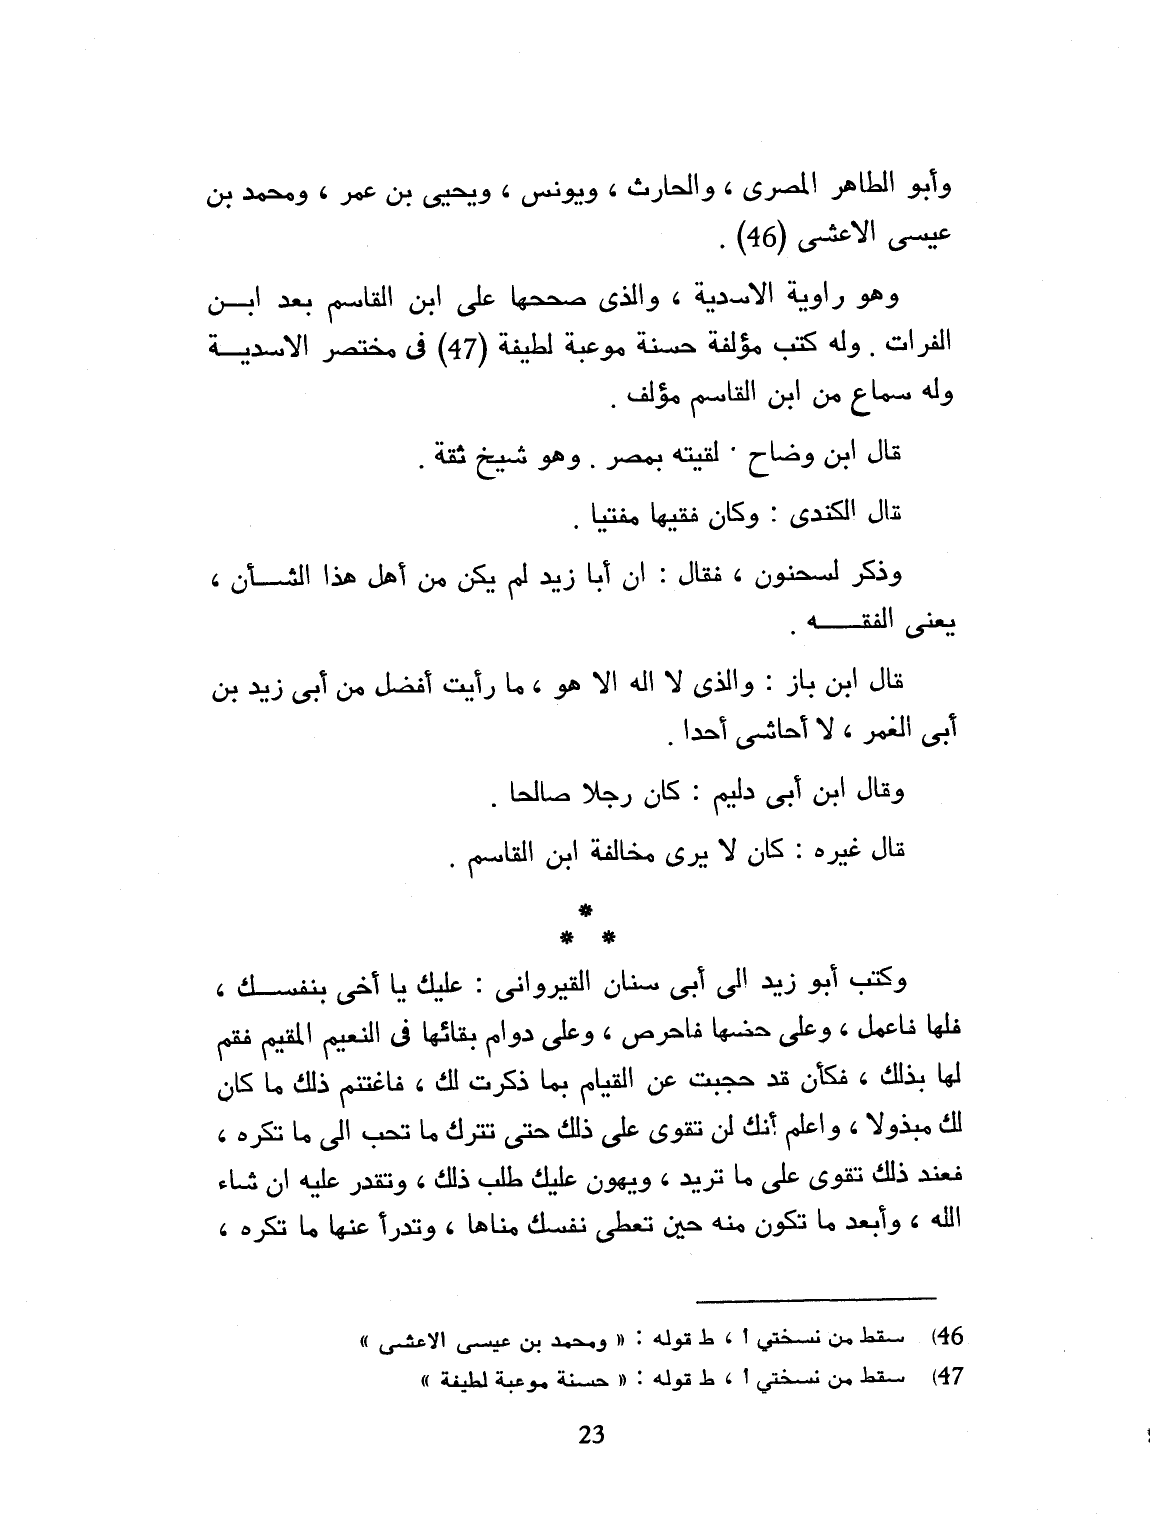 وأبو الطاهر المصرى ، والحارث ، ويونس ، ويحيى بن عمر ، ومحمد بن
عيسى الاعشى (46) .
وهو راوية الاسدية ، والذى صححها على ابن القاسم بعد ابن
الفرات . وله كتب مؤلفة حسنة موعبة لطيفة (47) فى مختصر الاسدية
وله سماع من ابن القاسم مؤلف .
قال ابن وضاح · لقيته بمصر . وهو شيخ ثقة .
قال الكندى : وكان فقيها مفتيا .
وذكر لسحنون ، فقال : ان أبا زيد لم يكن من أهل هذا الشأن ،
يعنى الفقه .
قال ابن باز : والذى لا اله الا هو ، ما رأيت أفضل من أبى زيد بن
أبى الغمر ، لا أحاشى أحدا .
وقال ابن أبى دليم : كان رجلا صالحا .
قال غيره : كان لا يرى مخالفة ابن القاسم .
*
* *
وكتب أبو زيد الى أبى سنان القيروانى : عليك يا أخى بنفسك ،
فلها فاعمل ، وعلى حضها فاحرص ، وعلى دوام بقائها فى النعيم المقيم فقم
لها بذلك ، فكأن قد حجبت عن القيام بما ذكرت لك ، فاغتنم ذلك ما كان
لك مبذولا ، واعلم أنك لن تقوى على ذلك حتى تترك ما تحب الى ما تكره ،
فعند ذلك تقوى على ما تريد ، ويهون عليك طلب ذلك ، وتقدر عليه ان شاء
الله ، وأبعد ما تكون منه حين تعطى نفسك مناها ، وتدرأ عنها ما تكره ،
46) سقط من نسختي أ ، ط قوله : « ومحمد بن عيسى الاعشى »
47) سقط من نسختي أ ، ط قوله : « حسنة موعبة لطيفة »
23